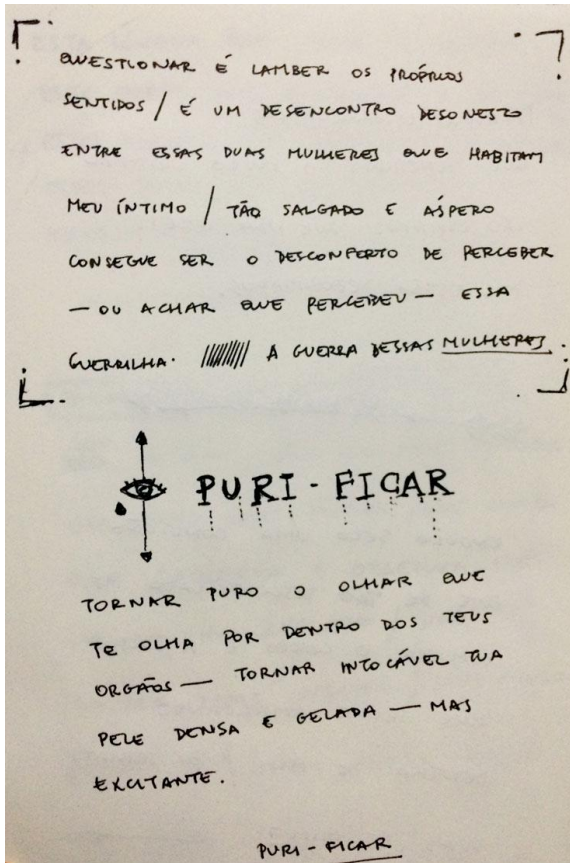 QUESTIONAR É LAMBER OS PRÓPRIOS
SENTIDOS / É UM DESENCONTRO DESONESTO
ENTRE ESSAS DUAS MULHERES QUE HABITAM
MEU ÍNTIMO / TÃO SALGADO E ÁSPERO
CONSEGUE SER O DESCONFORTO DE PERCEBER
— OU ACHAR QUE PERCEBEU — ESSA
GUERRILHA. A GUERRA DESSAS MULHERES.
PURI - FICAR
TORNAR PURO O OLHAR QUE
TE OLHA POR DENTRO DOS TEUS
ORGÃOS — TORNAR INTOCÁVEL TUA
PELE DENSA E GELADA — MAS
EXCITANTE.
PURI - FICAR